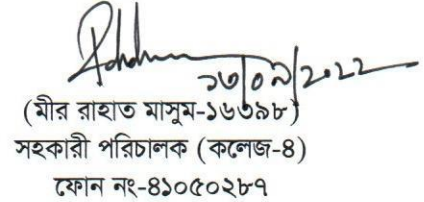 ১৩/০৯/২০২২
(মীর রাহাত মাসুম-১৬৩৯৮)
সহকারী পরিচালক (কলেজ-৪)
ফোন নং-৪১০৫০২৮৭